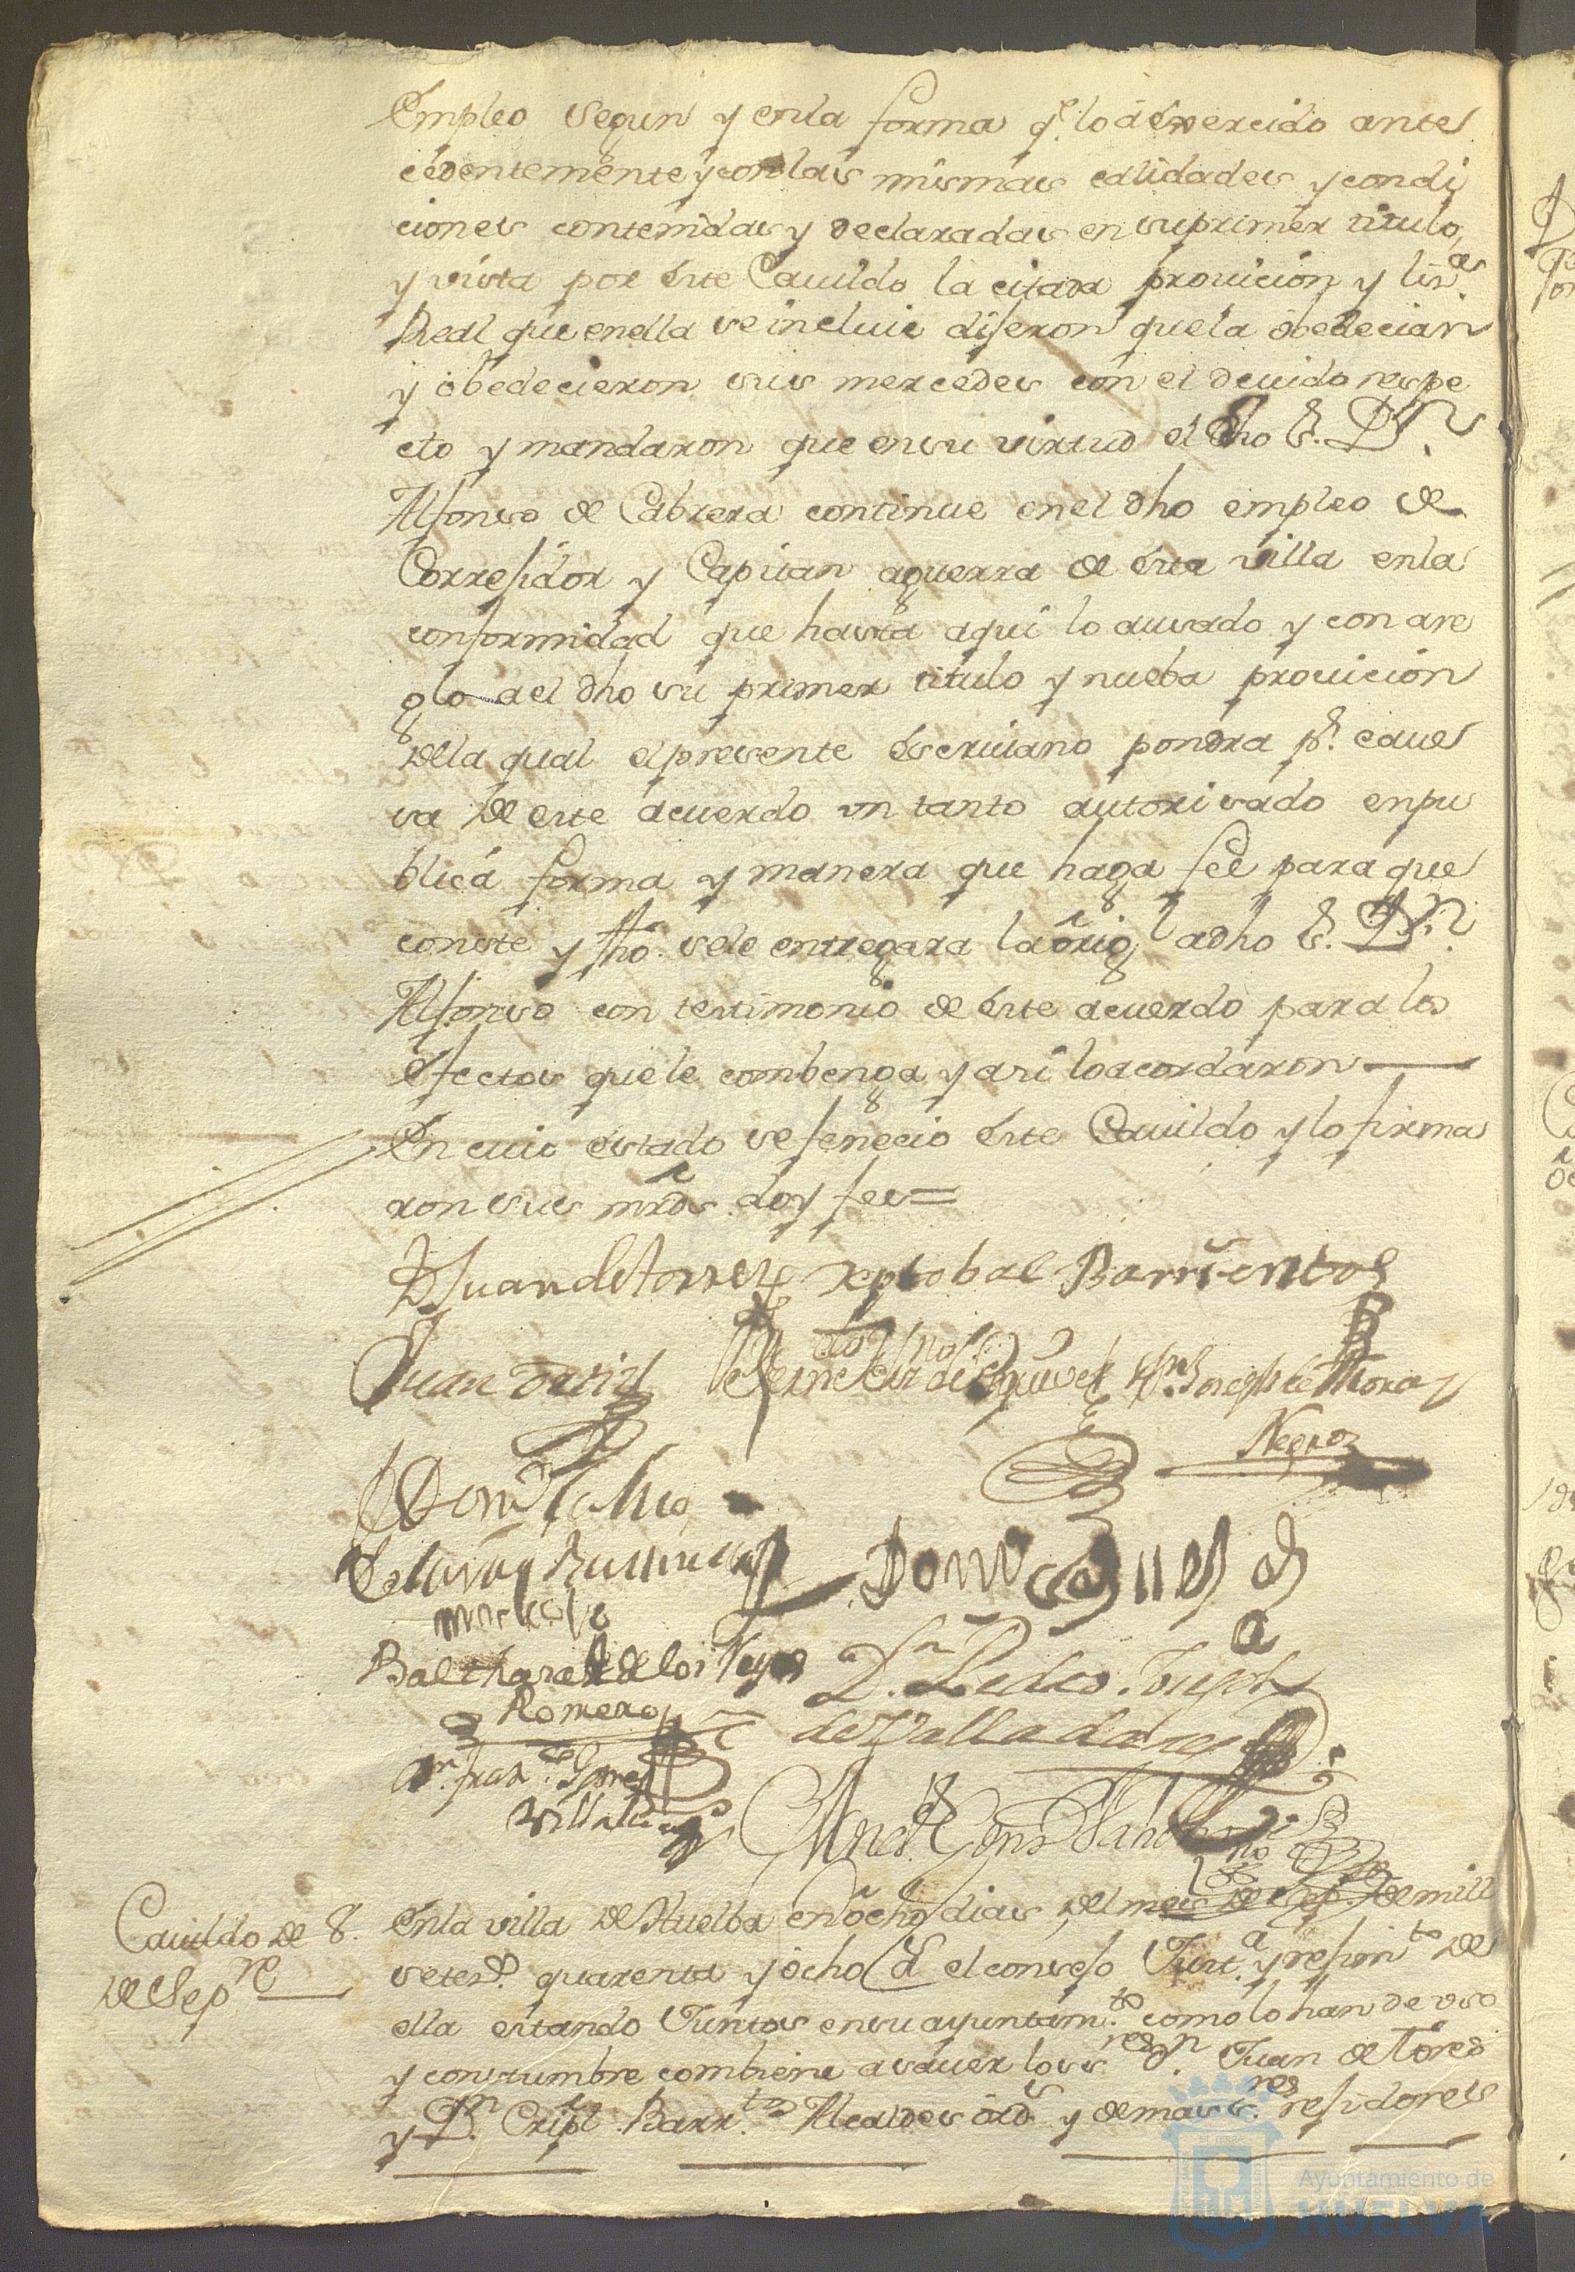 Empleo segun y enla forma q.e lo á éxercido ante
cedentemente y con las mismas calidades y condi
ciones contenidas y declaradas en su primer titulo,
y vista por éste Cavildo la citada provicion y lis.as
Real que enella se incluie dijeron que la óbedecian
y óbedecieron sus mercedes con el devido respe
cto y mandaron que en su virtud el dho S.r D.n
Alfonso de Cabrera continue enel dho empleo de
Correjidor y Capitan aguerra de ésta villa enla
conformidad que hasta aqui lo a usado y con are
glo a el dho su primer titulo y nueba provicion
della qual el presente éscrivano pondra p.r cave
sa de este acuerdo un tanto autorisado enpu
blicá forma y manera que haga feé para que
conste y fho. sele entregara la órig.l adho S.r D.n
Alfonso con testimonio de éste acuerdo para los
éfectos que le combenga y asi lo acordaron
En cuio éstado se fenecio éste Cavildo y lo firma
ron sus mrds. doy fee=
D Juan de Torres Xptobal Barrientos
Juan
de Esquivel Jn. Joseph de Mora
Negro
Balthasar de los Reyes
Romero
D.n Pedro Joseph
de Valladares
Cavildo de 8.
de Sep.re
Enla villa de Huelba en ócho dias del mes de Sep.re de mill
setes.s quarenta y ócho a.s el consejo Just.a y rejim.to de
ella estando Juntos en su ayuntam.to como lo han de uso
y constumbre combiene a saver los s.res D.n Juan de Tores
y D.n Cripl. Barr.tos Alcaldes órd.s y demas s.res rejidores
Ayuntamiento de
HUELVA